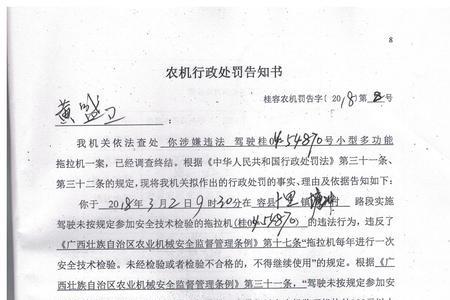 8
农机行政处罚告知书
桂容农机罚告字〔2018〕第2号
黄盛卫
我机关依法查处 你涉嫌违法 驾驶桂04-54870号小型多功能
拖拉机一案，已经调查终结。根据《中华人民共和国行政处罚法》第三十一条、
第三十二条的规定，现将我机关拟作出的行政处罚的事实、理由及依据告知如下：
你于 2018年3月2日9时30分在 容县十里镇 路段实施
驾驶未按规定参加安全技术检验的拖拉机（桂04-54870）的违法行为，违反了
《广西壮族自治区农业机械安全监督管理条例》第十七条“拖拉机每年进行一次
安全技术检验。未经检验或者检验不合格的，不得继续使用”的规定。根据《广
西壮族自治区农业机械安全监督管理条例》第三十一条，“驾驶未按规定参加安